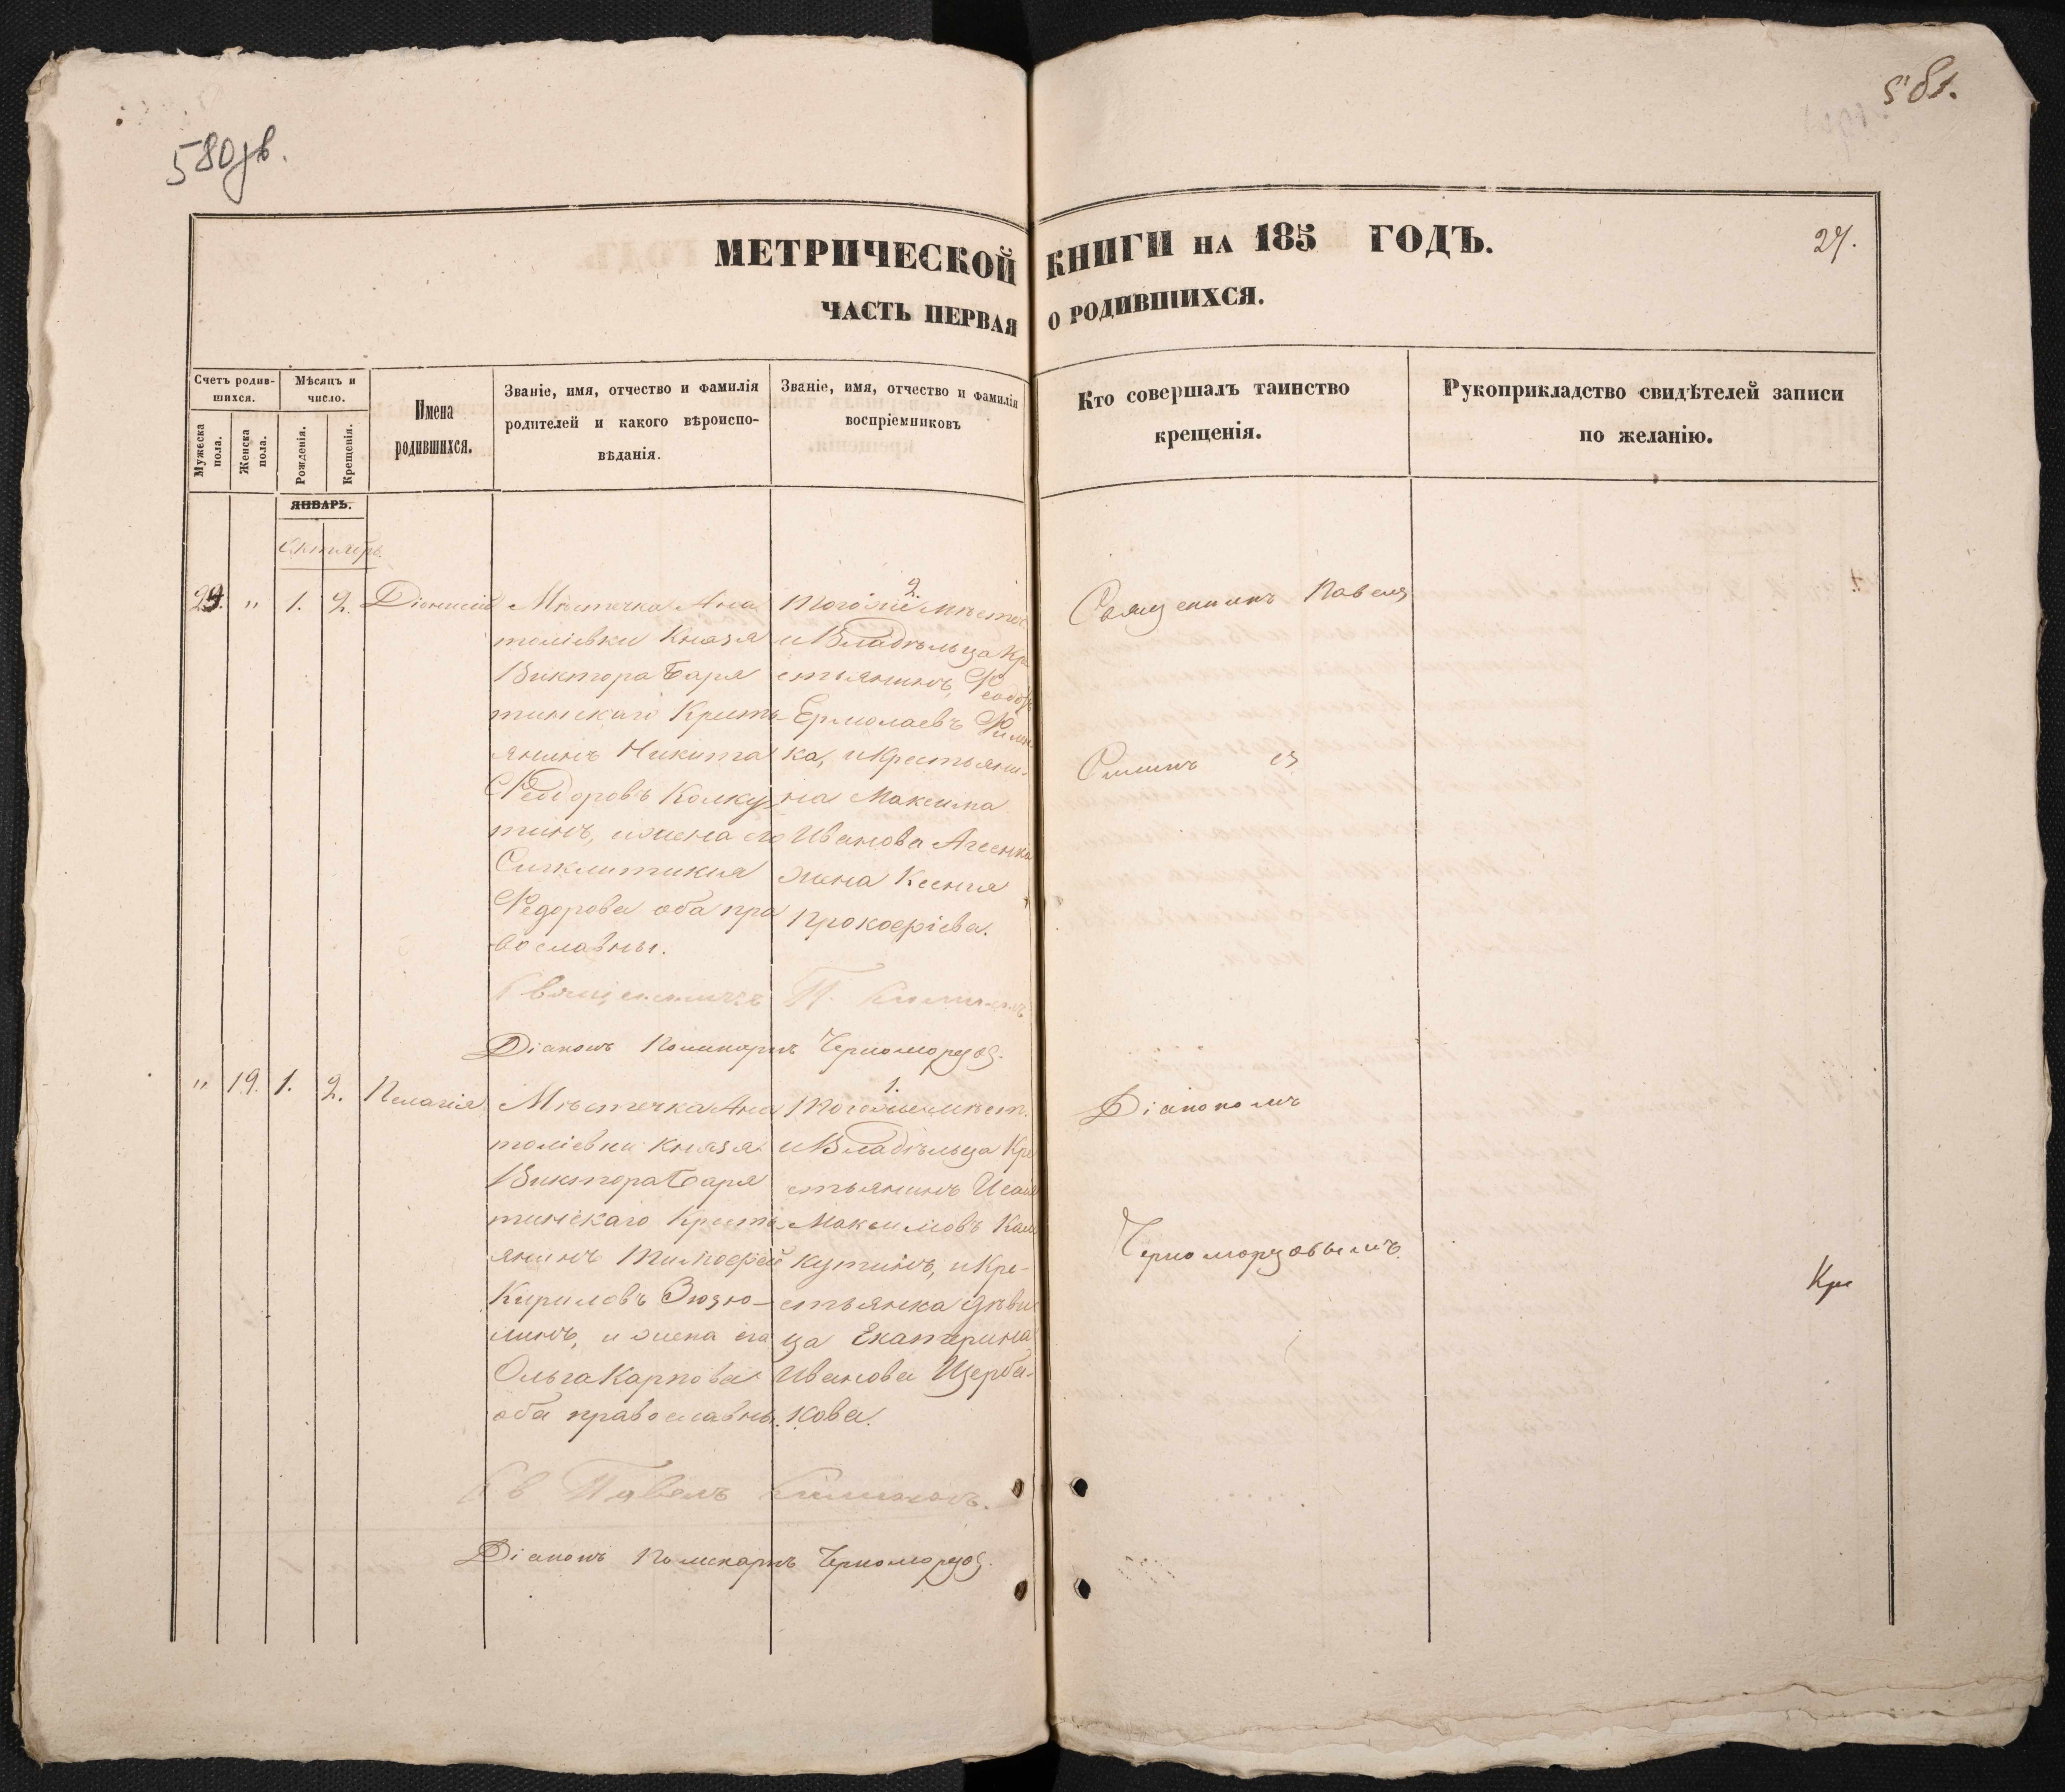 580зв.
581.
МЕТРИЧЕСКОЙ КНИГИ НА 185 ГОДЪ.
27.
ЧАСТЬ ПЕРВАЯ О РОДИВШИХСЯ.
Счетъ родив-
шихся.
Мужеска
пола.
Женска
пола.
Мѣсяцъ и
число.
Рожденія.
Крещенія.
Имена
родившихся.
Званіе, имя, отчество и фамилія
родителей и какого вѣроиспо-
вѣданія.
Званіе, имя, отчество и фамилія
воспріемниковъ
Кто совершалъ таинство
крещенія.
Рукоприкладство свидѣтелей записи
по желанію.
ЯНВАРЬ.
Октябрь.
"
1.
2.
Діонисій
Мѣстечка Ана
толіевки Князя
Виктора Баря
тинскаго Кресть
янинъ Никита
Феодоровъ Колку
тинъ, и жена его
Сигклитикия
Федорова оба пра
вославны.
2.
тогоже мѣстеч
и Владѣльца Кре
стьянинъ, Феодоръ
Ермолаевъ
ка, и Крестьяни-
на Максима
Иванова Агеенка
жена Ксения
Прокофіева.
Священникъ Павелъ
Симинъ
Священникъ П.
Діаконъ Поликарпъ Черноморцов.
"
19.
1.
2.
Пелагія
Мѣстечка Ана
толіевки Князя
Виктора Баря
тинскаго Кресть
янинъ Тимофей
Кириловъ Зюзю-
линъ, и жена его
Ольга Карпова
оба православны.
1.
тогоже мѣст.
и Владѣльца Кре
стьянинъ Исаія
Максимовъ Кал
кутинъ, и Кре-
стьянка дѣви
ца Екатерина
Иванова Щерба-
кова.
Діакономъ
Черноморцовымъ
Кре
Св Павелъ
Діаконъ Поликарпъ Черноморцов.